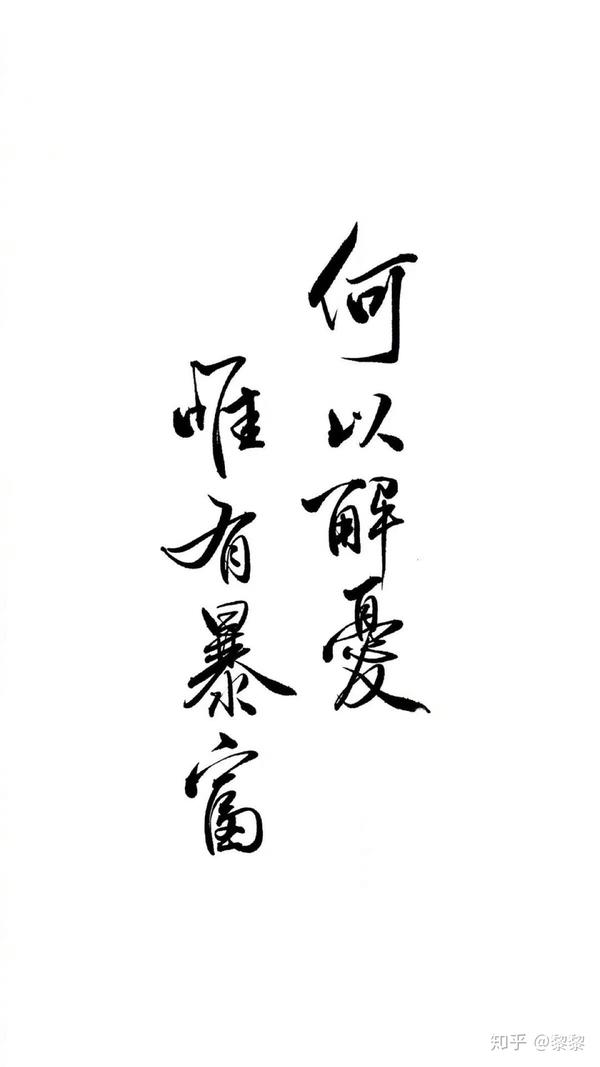 何以解憂
惟有暴富
知乎 @黎黎